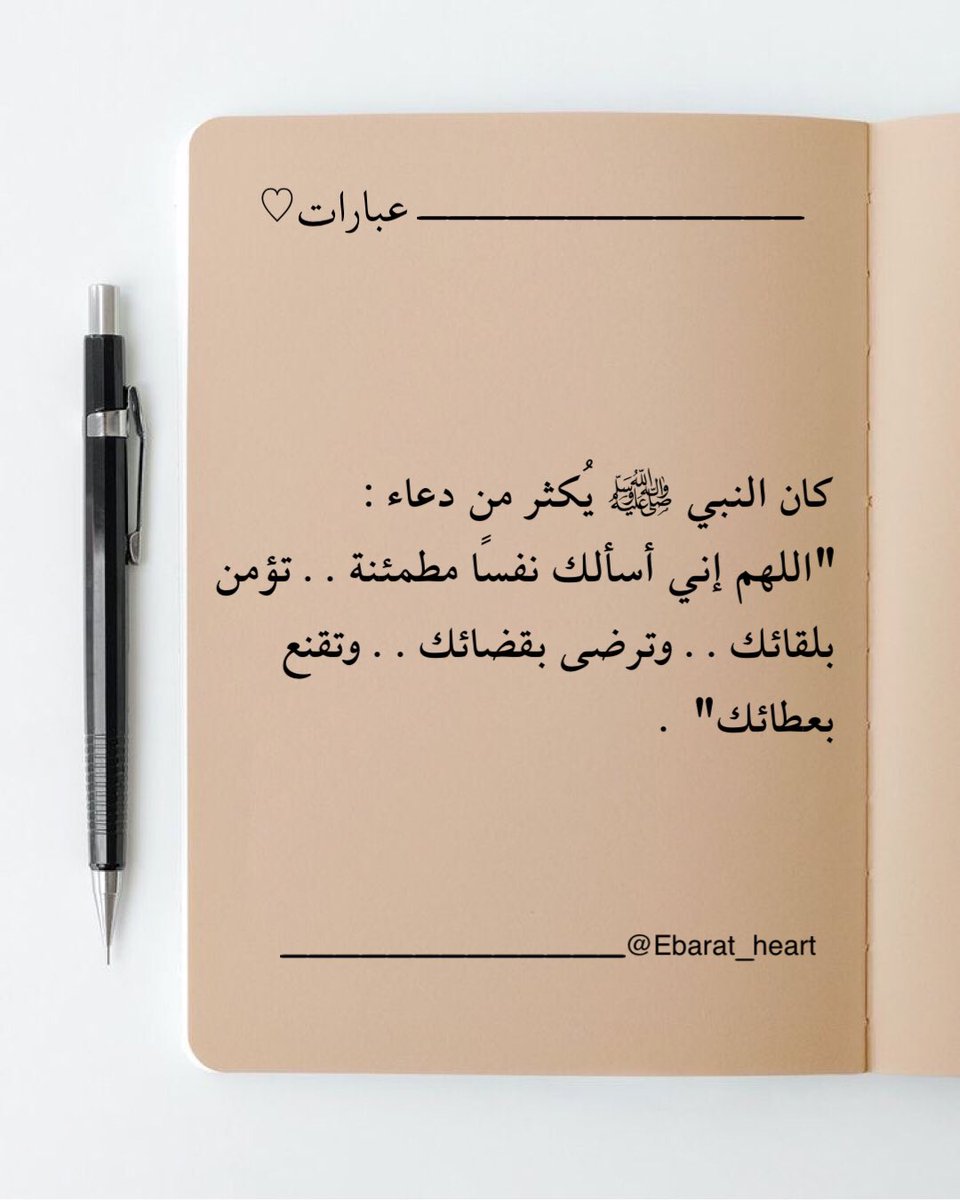 عبارات♡
كان النبي ﷺ يُكثر من دعاء :
"اللهم إني أسألك نفسًا مطمئنة . . تؤمن
بلقائك . . وترضى بقضائك . . وتقنع
بعطائك" .
@Ebarat_heart